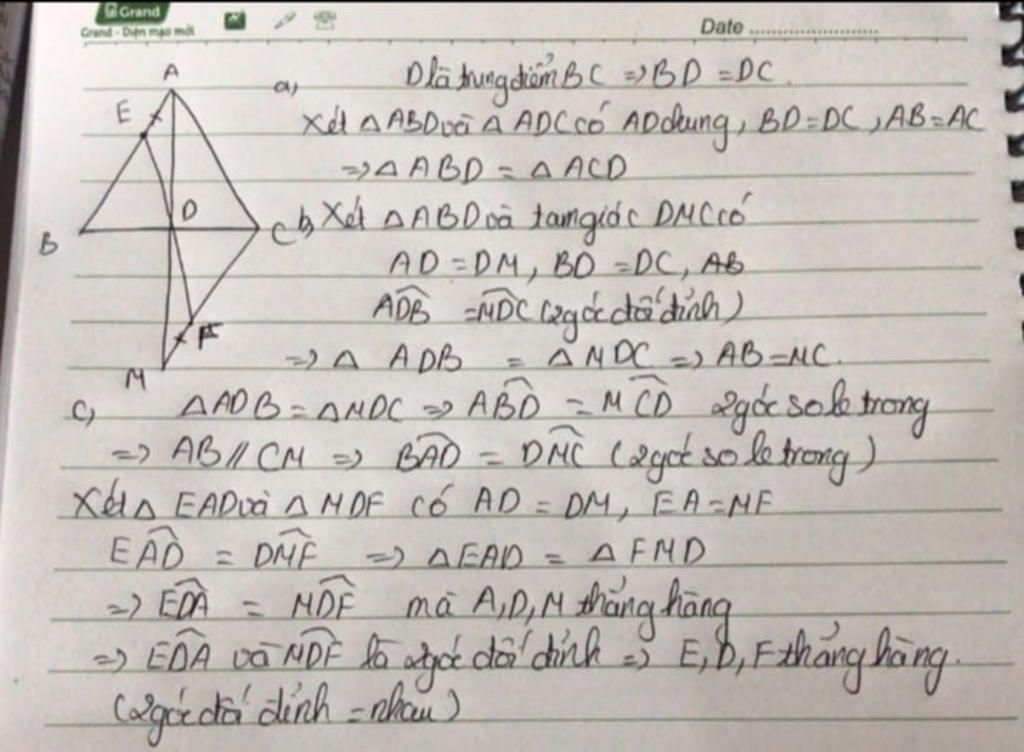 Grand
Grand - Diện mạo mới
Date
A
E
B
D
C
F
M
a, D là trung điểm BC => BD = DC.
Xét △ ABD và △ ADC có AD chung, BD = DC, AB = AC
=> △ ABD = △ ACD
b, Xét △ ABD và tam giác DMC có
AD = DM, BD = DC, AB
ADB = MDC (2 góc đối đỉnh)
=> △ ADB = △ MDC => AB = MC.
c, △ADB = △MDC => ABD = MCD 2 góc so le trong
=> AB // CM => BAD = DMC (2 góc so le trong)
Xét △ EAD và △ MDF có AD = DM, EA = MF
EAD = DMF => △EAD = △ FMD
=> EDA = MDF mà A, D, M thẳng hàng
=> EDA và MDF là 2 góc đối đỉnh => E, D, F thẳng hàng.
(2 góc đối đỉnh = nhau)